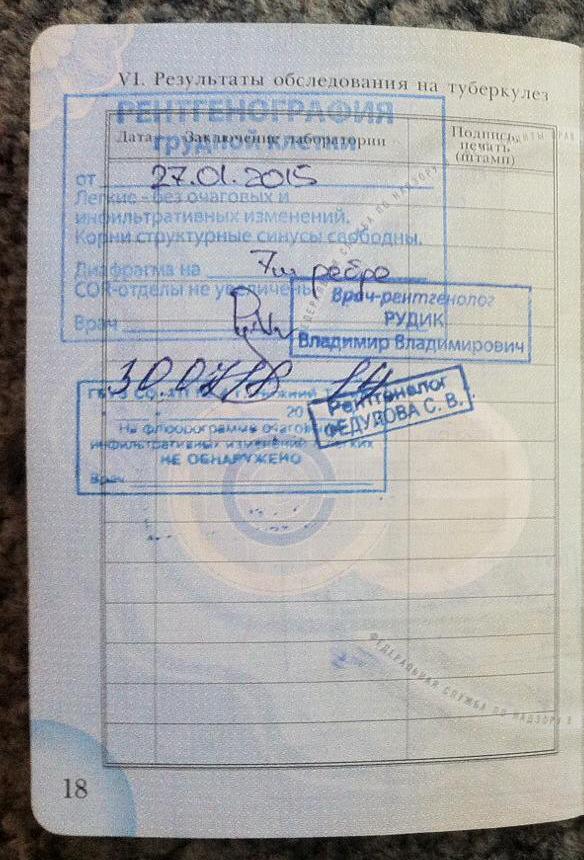 VI. Результаты обследования на туберкулез
РЕНТГЕНОГРАФИЯ
грудной клетки
Дата
Заключение лаборатории
Подпись,
печать
(штамп)
от 27.01.2015
Легкие - без очаговых и
инфильтративных изменений.
Корни структурные синусы свободны.
Диафрагма на 7м ребре
COR-отделы не увеличены
Врач
Врач-рентгенолог
РУДИК
Владимир Владимирович
30.07.18
Рентгенолог
ФЕДУЛОВА С. В.
20
На флюорограмме очаговых
инфильтративных изменений
НЕ ОБНАРУЖЕНО
Врач
ФЕДЕРАЛЬНАЯ СЛУЖБА ПО НАДЗОРУ В
18